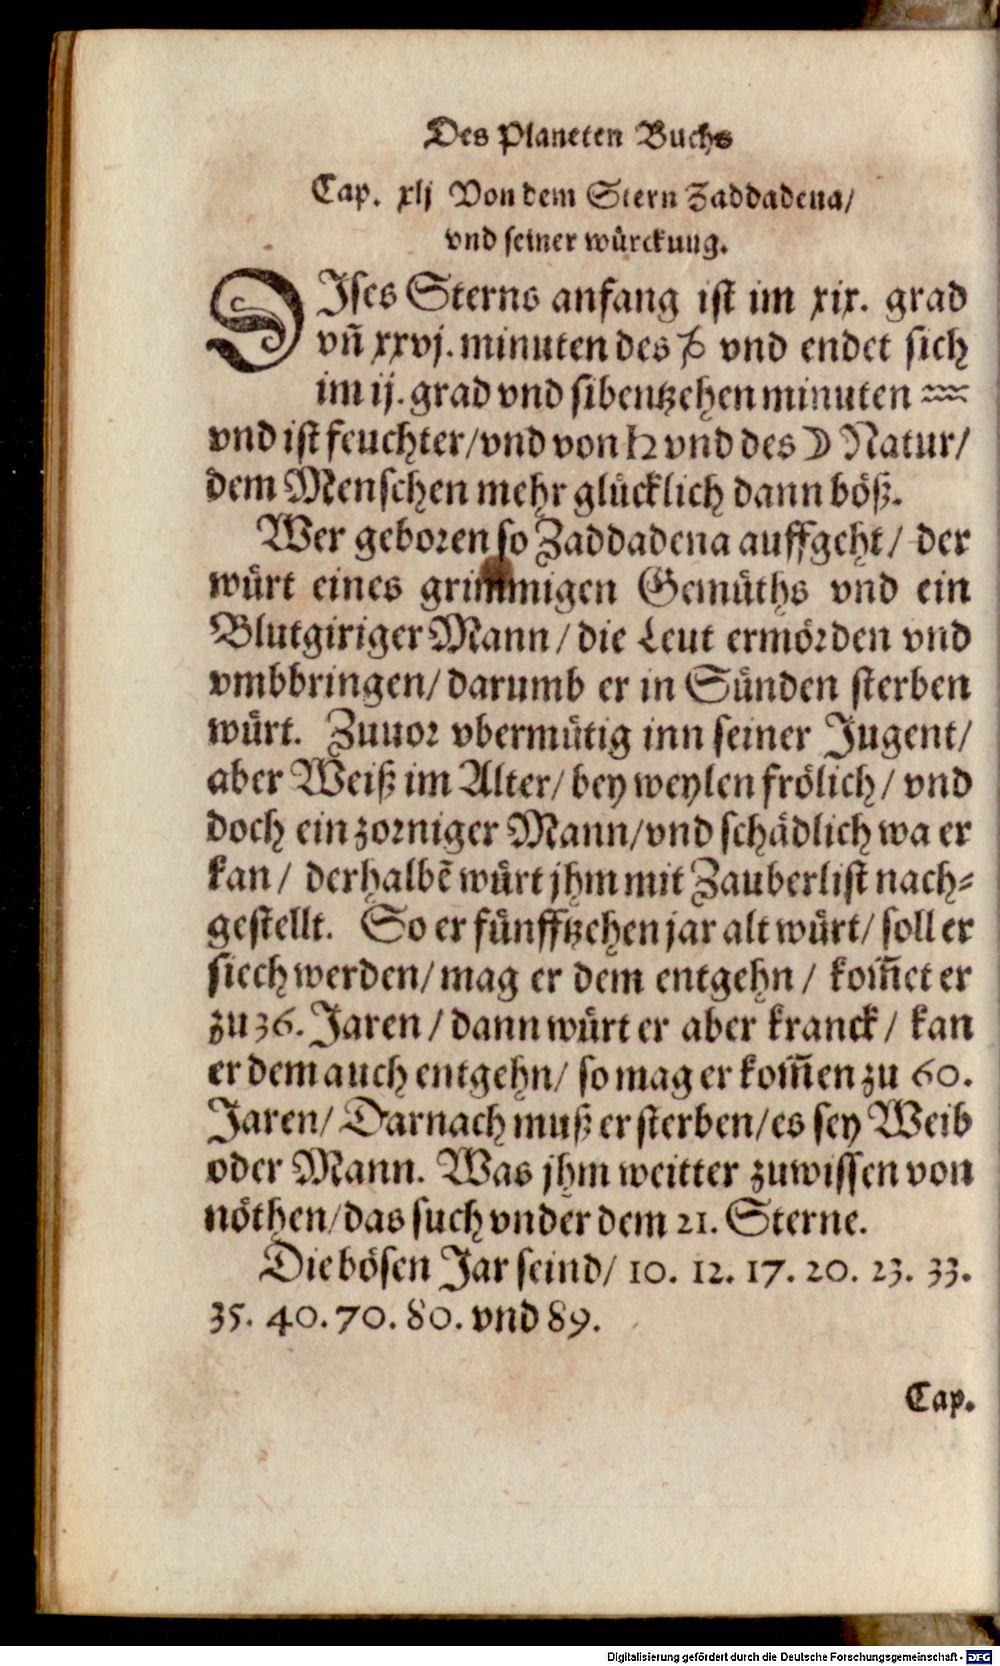 Des Planeten Buchs
Cap. xlj Von dem Stern Zaddadena/
vnd seiner würckung.
DIses Sterns anfang ist im xix. grad
vñ xxvj. minuten des ♑ vnd endet sich
im ij. grad vnd sibentzehen minuten ♒
vnd ist feuchter/vnd von ♄ vnd des ☽ Natur/
dem Menschen mehr glücklich dann böß.
Wer geboren so Zaddadena auffgeht/ der
würt eines grimmigen Gemüths vnd ein
Blutgiriger Mann/ die Leut ermörden vnd
vmbbringen/ darumb er in Sünden sterben
würt. Zuuor vbermütig inn seiner Jugent/
aber Weiß im Alter/ bey weylen frölich/ vnd
doch ein zorniger Mann/vnd schädlich wa er
kan/ derhalbẽ würt jhm mit Zauberlist nach⸗
gestellt. So er fünfftzehen jar alt würt/ soll er
siech werden/ mag er dem entgehn/ kom̃et er
zu 36. Jaren/ dann würt er aber kranck/ kan
er dem auch entgehn/ so mag er kom̃en zu 60.
Jaren/ Darnach muß er sterben/es sey Weib
oder Mann. Was jhm weitter zuwissen von
nöthen/das such vnder dem 21. Sterne.
Die bösen Jar seind/ 10. 12. 17. 20. 23. 33.
35. 40. 70. 80. vnd 89.
Cap.
Digitalisierung gefördert durch die Deutsche Forschungsgemeinschaft - DFG